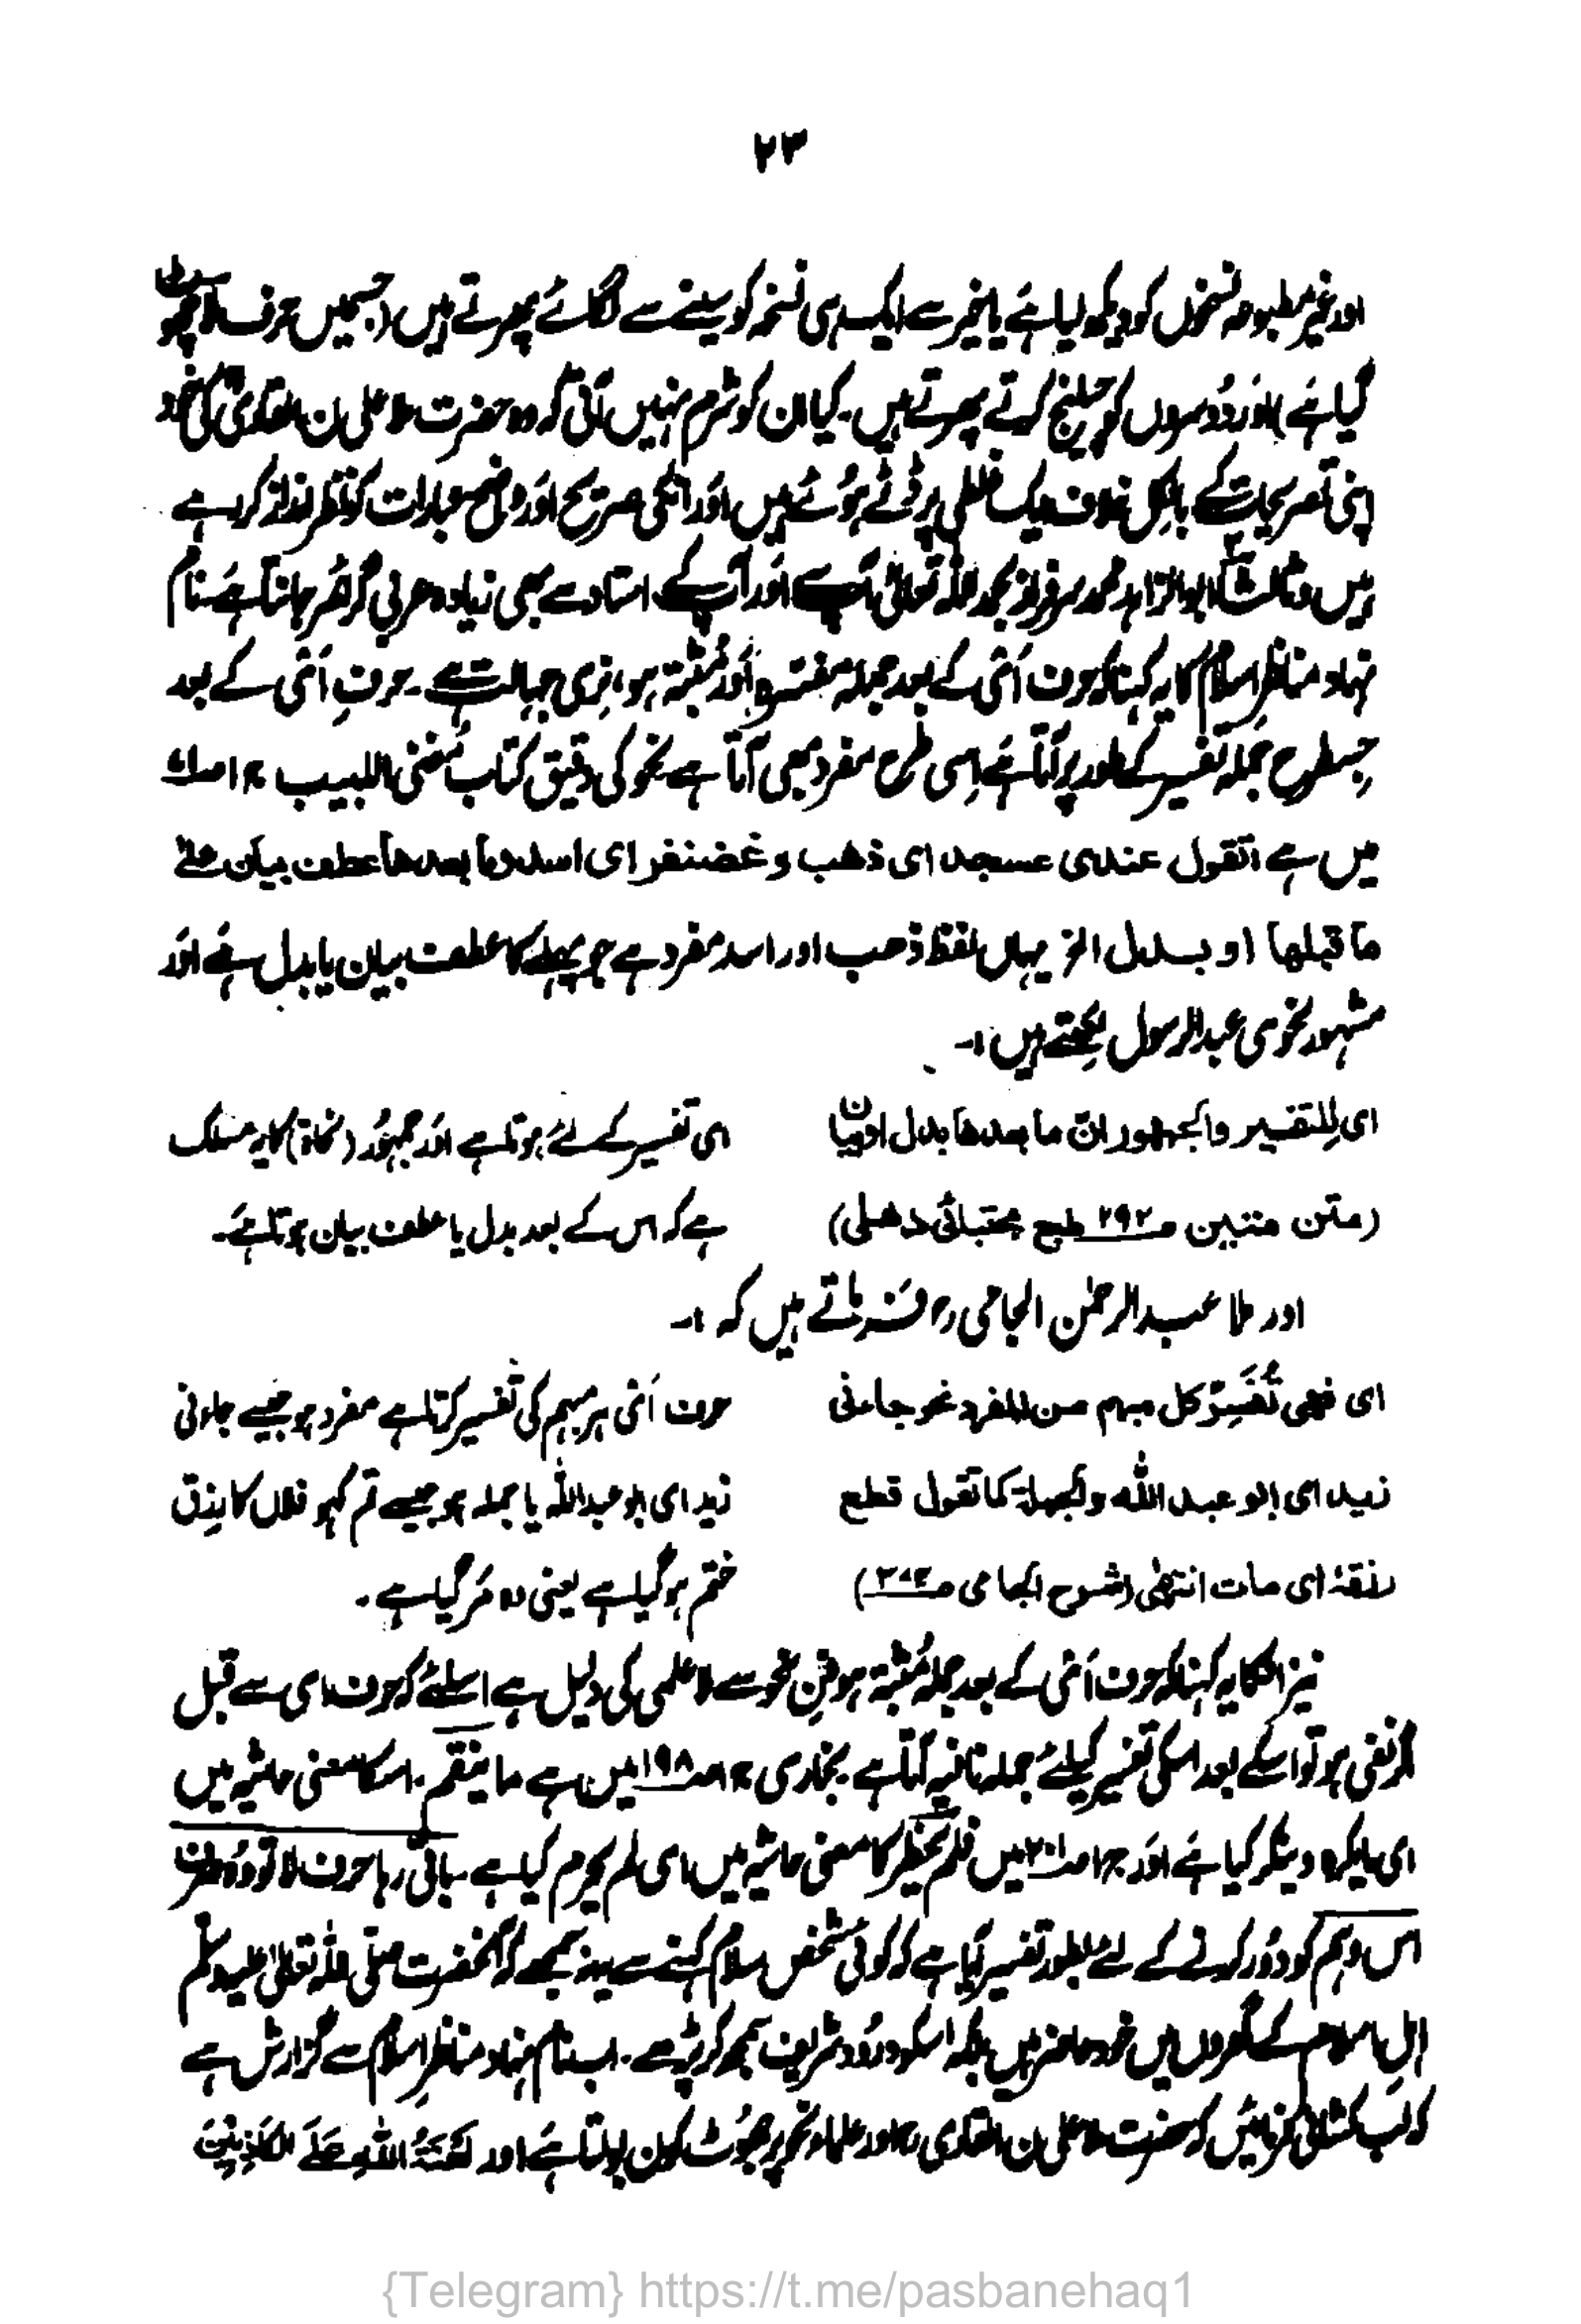 ۲۳
اور غیر مطبوعہ نسخوں کو دیکھ لیا ہے یا خیر سے ایک ہی نسخہ کو سینے سے لگائے پھرتے ہیں (جسمیں حرف لا چھوٹ
گیا ہے) اور دوسروں کو چیلنج کرتے پھرتے ہیں۔ کیا ان کو شرم نہیں آتی کہ وہ حضرت ملا علی ن القاری کی خود
اپنی تصریحات کے بالکل خلاف ایک غلطی پر ڈٹے ہوئے ہیں اور انکی صریح اور واضح عبارات کو نظر انداز کر رہے
ہیں وثالثاً ابوالزاہد محمد سرفراز بحمد اللہ تعالیٰ آپ سے اور آپ کے استاد سے بھی زیادہ عربی گرائمر جانتا ہے نام
نہاد مناظر اسلام کا یہ کہنا کہ حرف اَئی کے بعد جملہ مفسّرہ اور مُثبتہ ہو، نِری جہالت ہے۔ حرفِ اَئی کے بعد
جسطرح جملہ تفسیر کے طور پر آتا ہے اِسی طرح مفرد بھی آتا ہے نحو کی دقیق کتاب مُغنی اللبیب ج۱ ص
میں ہے اتقول عندی عسجد ای ذھب و غضنفر ای اسد وما بعدھا عطف بیان علیٰ
ما قبلھا او بدل الخ یہاں لفظ ذھب اور اسد مفرد ہے جو پہلے کا عطف بیان یا بدل ہے اور
مشہور نحوی عبدالرسول لکھتے ہیں :۔
ای لِلتفسیر والجمہور انّ ما بعدھا بدل او بیان
ای تفسیر کے لئے ہوتا ہے اور جمہور (نحاۃ) کا یہ مسلک
(متن متین صـ۲۹۲ طبع مجتبائی دھلی)
ہے کہ اس کے بعد بدل یا عطف بیان ہوتا ہے۔
اور ملا عبدالرحمٰن الجامی رہ فرماتے ہیں کہ :۔
ای فھی تُفَسِّرُ کل مبہم من المفرد نحو جاءنی
حرف اَئی ہر مبہم کی تفسیر کرتا ہے مفرد ہو جیسے جاءنی
زید ای ابو عبد اللّٰہ والجملۃ کما تقول قطع
زید ای ابو عبداللہ یا جملہ ہو جیسے تم کہو فلاں کا رِزق
رزقہٗ ای مات انتھٰی (شرح الجامی صـ)
ختم ہو گیا ہے یعنی وہ مَر گیا ہے ۔
نیز انکا یہ کہنا کہ حرف اَئی کے بعد جملہ مُثبتہ ہو فنِ نحو سے لا علمی کی دلیل ہے اسلئے کہ حرف ای سے قبل
اگر نفی ہو تو اسکے بعد اسکی تفسیر کیلئے جملہ نافیہ آتا ہے بخاری ج۱ صـ۱۹۸ میں ہے ما ینقم۔ اسکا معنی حاشیہ میں
ای ما یکرہ و ینکر کیا ہے اور میں فلم یحظر کا معنی حاشیہ میں ای لم یحرم کیا ہے باقی رہا حرف لا تو وہ صرف
اس وہم کو دُور کرنے کے لئے بطور تفسیر آیا ہے کہ کوئی شخص سلام کہنے سے یہ نہ سمجھے کہ آنحضرت صلّی اللہ تعالیٰ علیہ وسلم
اہلِ اسلام کے گھروں میں خود حاضر ہیں بلکہ اسکو درُود شریف سمجھ کر پڑھے۔ اب نام نہاد مناظرِ اسلام سے گزارش ہے
کہ لَب کُشائی فرمائیں کہ حضرت ملا علی ن القاری رہ اور علماء نحو پر جھوٹ کون بولتا ہے اور لَعْنَۃُ اللّٰہِ عَلَی الْکٰذِبِیْنَ
{Telegram} https://t.me/pasbanehaq1